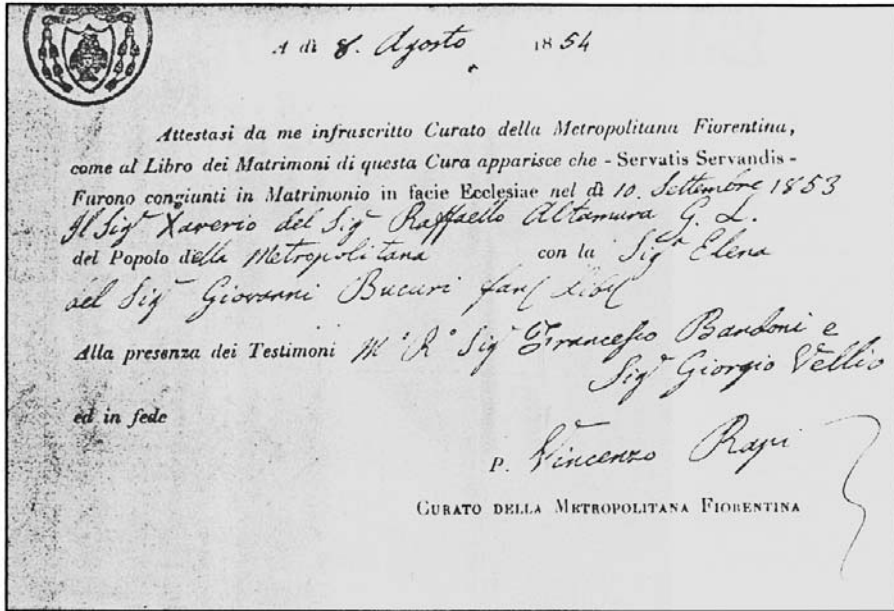 A dì 8. Agosto 1854
Attestasi da me infrascritto Curato della Metropolitana Fiorentina,
come al Libro dei Matrimoni di questa Cura apparisce che - Servatis Servandis -
Furono congiunti in Matrimonio in facie Ecclesiae nel dì 10. Settembre 1853
Il Sigr Xaverio del Sigr Raffaello Altamura G. L.
del Popolo della Metropolitana con la Sigra Elena
del Sigr Giovanni Bucuri
Alla presenza dei Testimoni Mo Ro Sigr Francesco Bandoni e
Sigr Giorgio Vellio
ed in fede
P. Vincenzo Rapi
CURATO DELLA METROPOLITANA FIORENTINA